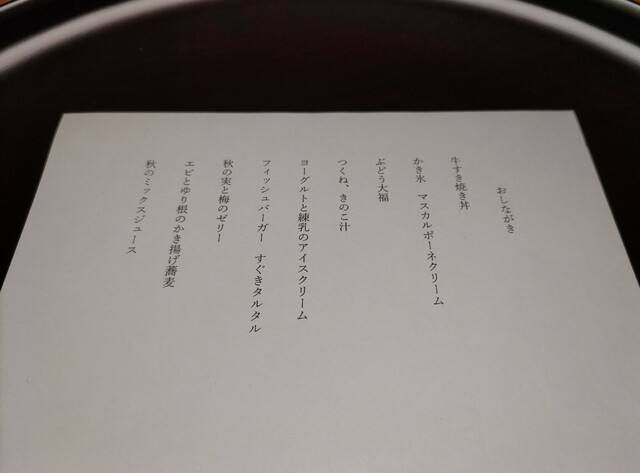 おしながき
牛すき焼き丼
かき氷　マスカルポーネクリーム
ぶどう大福
つくね、きのこ汁
ヨーグルトと練乳のアイスクリーム
フィッシュバーガー　すぐきタルタル
秋の実と梅のゼリー
エビとゆり根のかき揚げ蕎麦
秋のミックスジュース